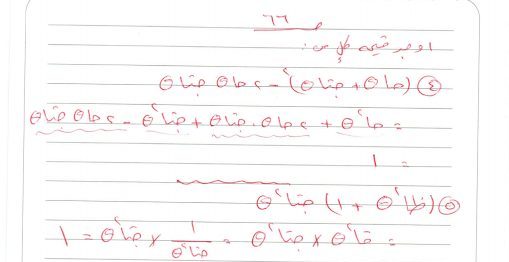 ص ٦٦
اوجد قيمة كل من :
④ (جا θ + جتا θ)² - ٢ جا θ جتا θ
= جا² θ + ٢ جا θ . جتا θ + جتا² θ - ٢ جا θ جتا θ
= ١
⑤ (ظا² θ + ١) جتا² θ
= قا² θ × جتا² θ = ١/جتا² θ × جتا² θ = ١